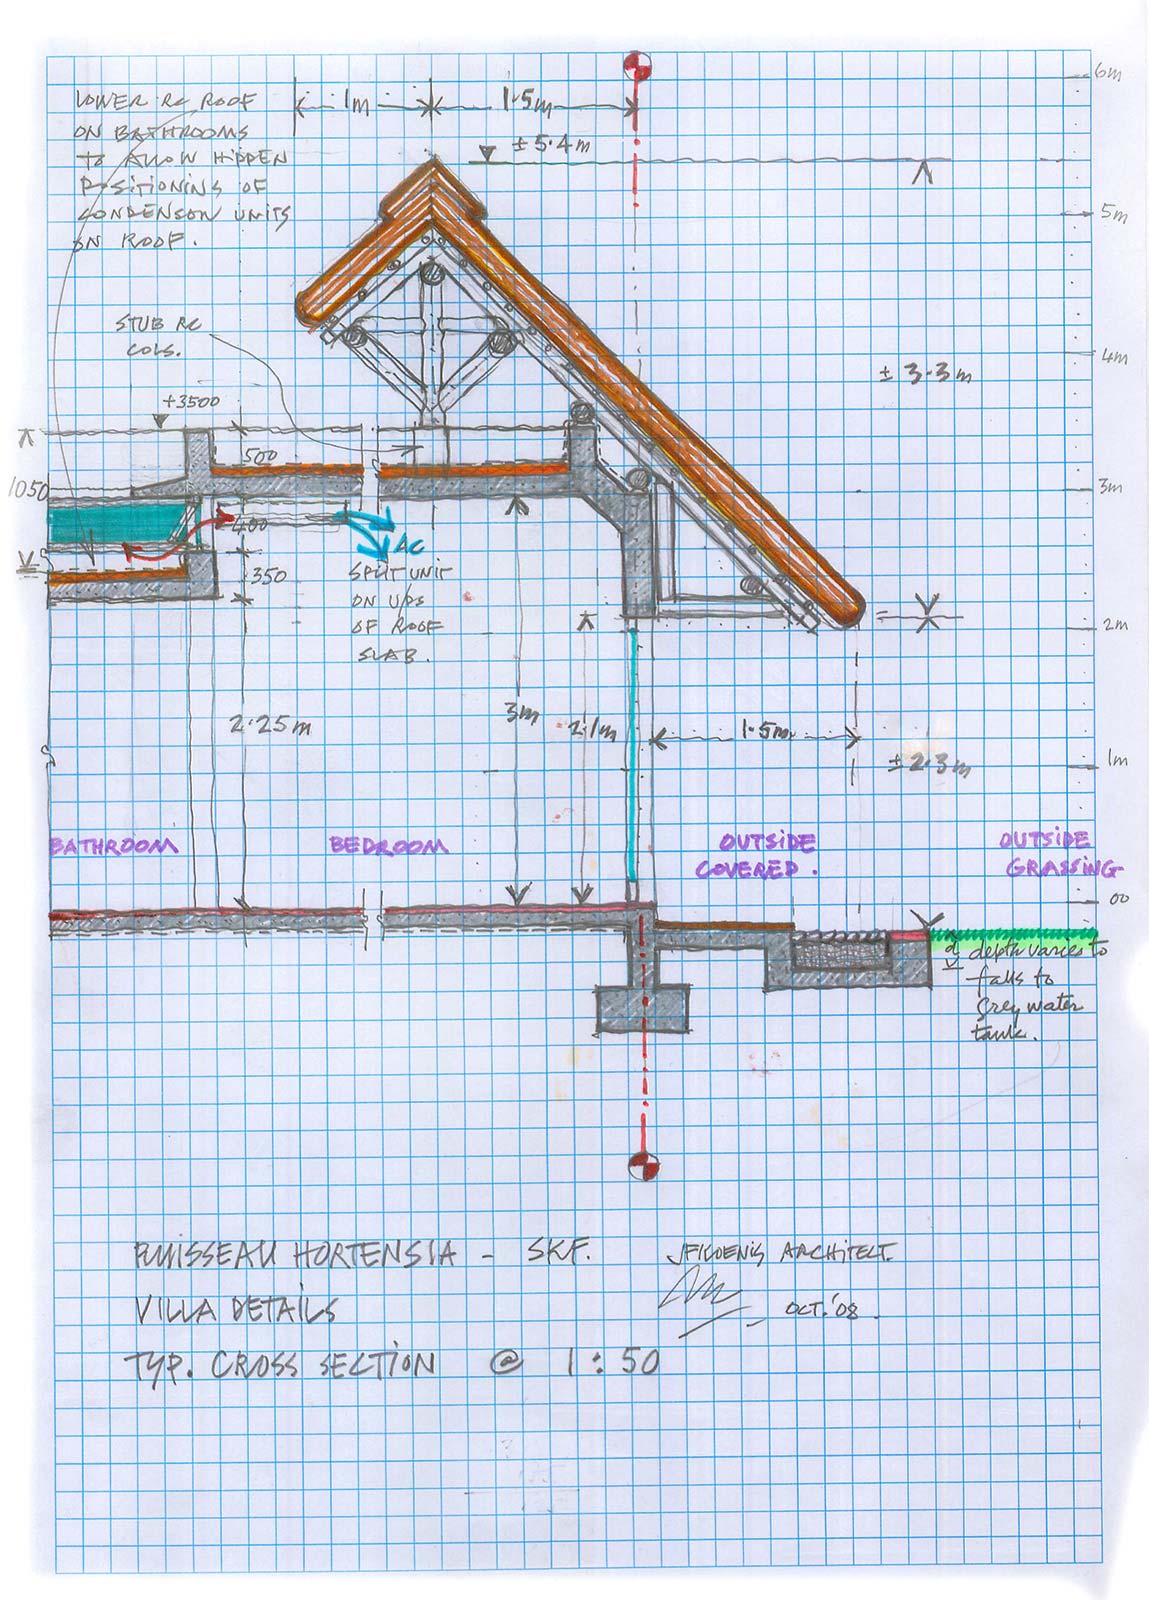 LOWER RC ROOF
ON BATHROOMS
TO ALLOW HIDDEN
POSITIONING OF
CONDENSON UNITS
ON ROOF.
1m
1.5m
± 5.4m
6m
5m
4m
3m
2m
1m
00
STUB RC
COLS.
± 3.3m
+3500
500
1050
400
350
AC
SPLIT UNIT
ON U/DS
OF ROOF
SLAB.
2.25m
3m
2.1m
1.5m
± 2.3m
BATHROOM
BEDROOM
OUTSIDE
COVERED.
OUTSIDE
GRASSING
d depth varies to
falls to
grey water
tank.
RUISSEAU HORTENSIA - SKF.
ARCHITECT.
VILLA DETAILS
OCT.'08.
TYP. CROSS SECTION @ 1:50